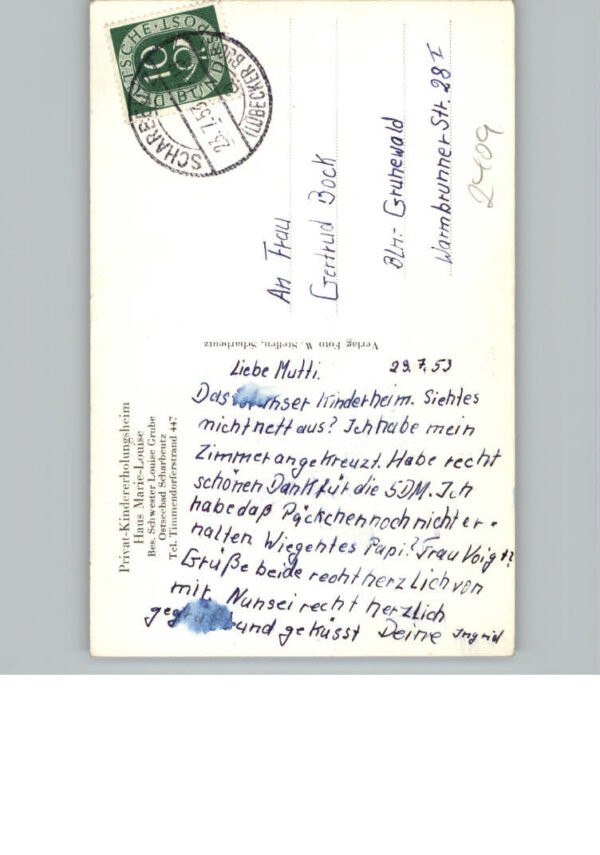 DEUTSCHE BUNDESPOST
10
SCHARBEUTZ
(LÜBECKER BUCHT)
An Frau
Gertrud Bock
Bln.- Grunewald
Warmbrunner Str. 28 I
2409
Verlag Foto W. Steffen, Scharbeutz
Privat-Kindererholungsheim
Haus Marie-Louise
Bes. Schwester Louise Grube
Ostseebad Scharbeutz
Tel. Timmendorferstrand 447
Liebe Mutti. 29.7.53
Das unser Kinderheim. Siehtes
nicht nett aus? Ich habe mein
Zimmer angekreuzt. Habe recht
schönen Dank für die 5DM. Ich
habe daß Päckchen noch nicht er-
halten. Wie gehtes Papi? Frau Voigt?
Grüße beide recht herzlich von
mir. Nun sei recht herzlich
gegrüßt und geküsst Deine Ingrid